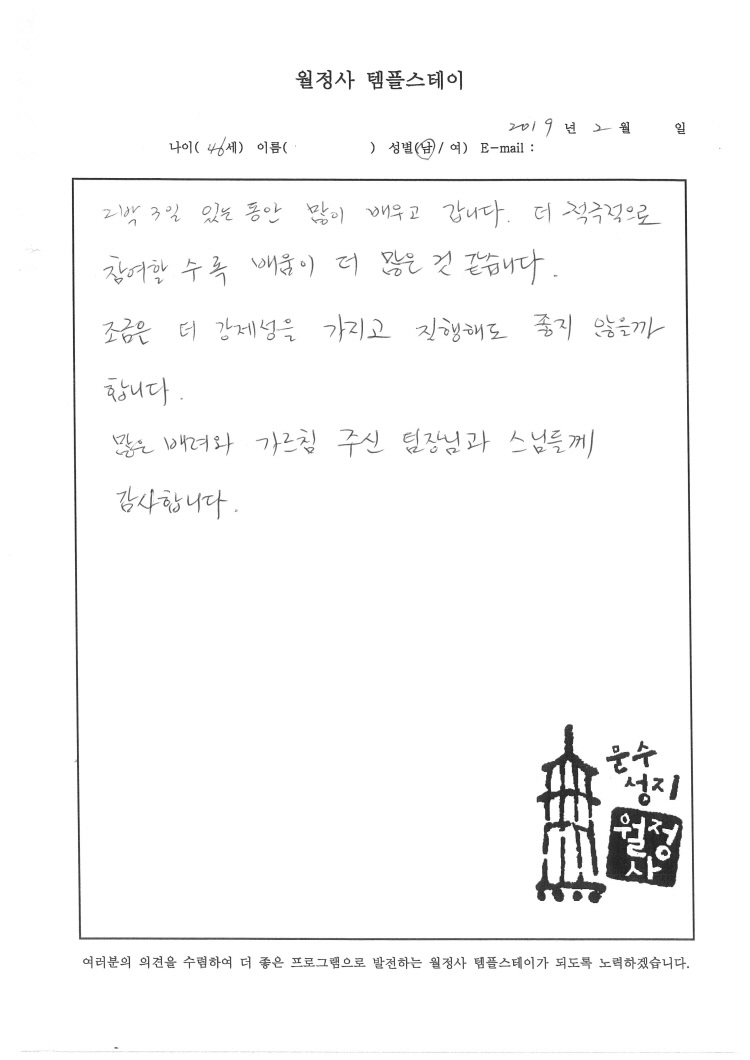 월정사 템플스테이
2019 년 2 월 일
나이( 46세) 이름( ) 성별(남/ 여) E-mail :
2박 3일 있는 동안 많이 배우고 갑니다. 더 적극적으로
참여할 수록 배움이 더 많은 것 같습니다.
조금은 더 강제성을 가지고 진행해도 좋지 않을까
합니다.
많은 배려와 가르침 주신 팀장님과 스님들께
감사합니다.
문수
성지
월정
사
여러분의 의견을 수렴하여 더 좋은 프로그램으로 발전하는 월정사 템플스테이가 되도록 노력하겠습니다.